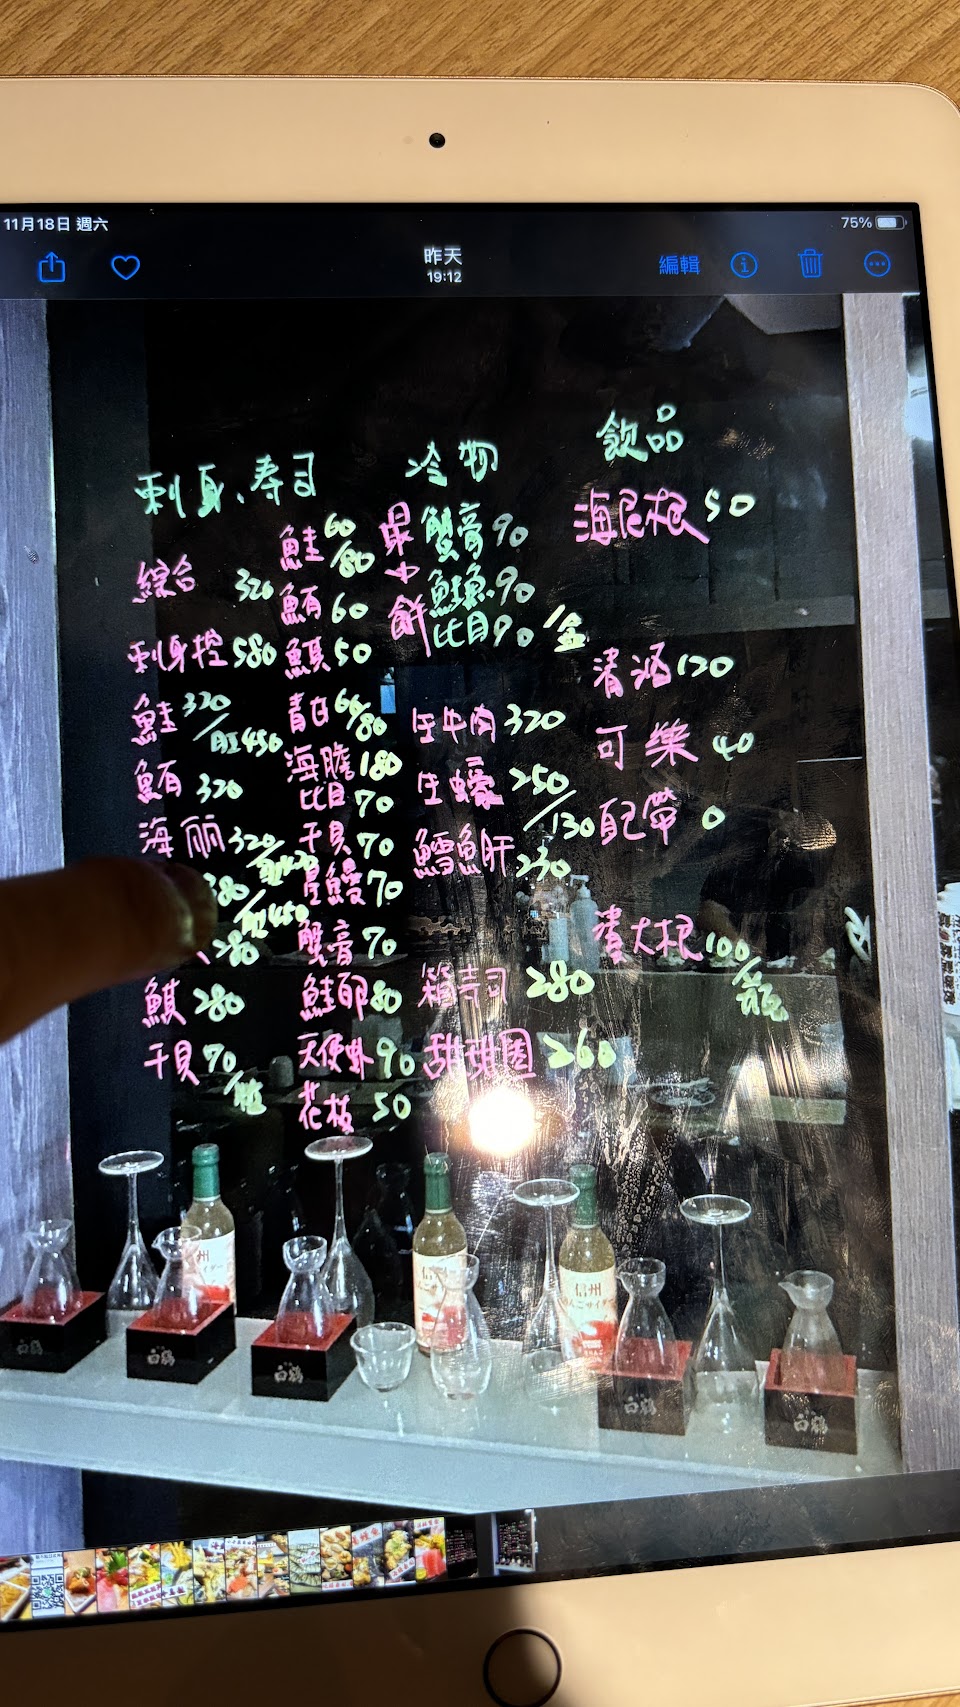 11月18日 週六
75%
昨天
19:12
編輯
刺身、壽司
綜合 320
刺身控 580
鮭 320
/肚450
鮪 320
海丽 320
380
/肚450
280
鯕 280
干貝 70
鮭 60
/80
鮪 60
鯕 50
青甘 60/80
海膽 180
比目 70
干貝 70
星鰻 70
蟹膏 70
鮭卵 80
天使蝦 90
花枝 50
冷物
最中餅
蟹膏 90
鮭魚 90
比目 90
生牛肉 320
生蠔 250
/130
鱈魚肝 230
箱寿司 280
甜甜圈 260
飲品
海尼根 50
清酒 120
可樂 40
自帶 0
信州
りんごサイダー
信州
白鶴
白鶴
白鶴
白鶴
白鶴